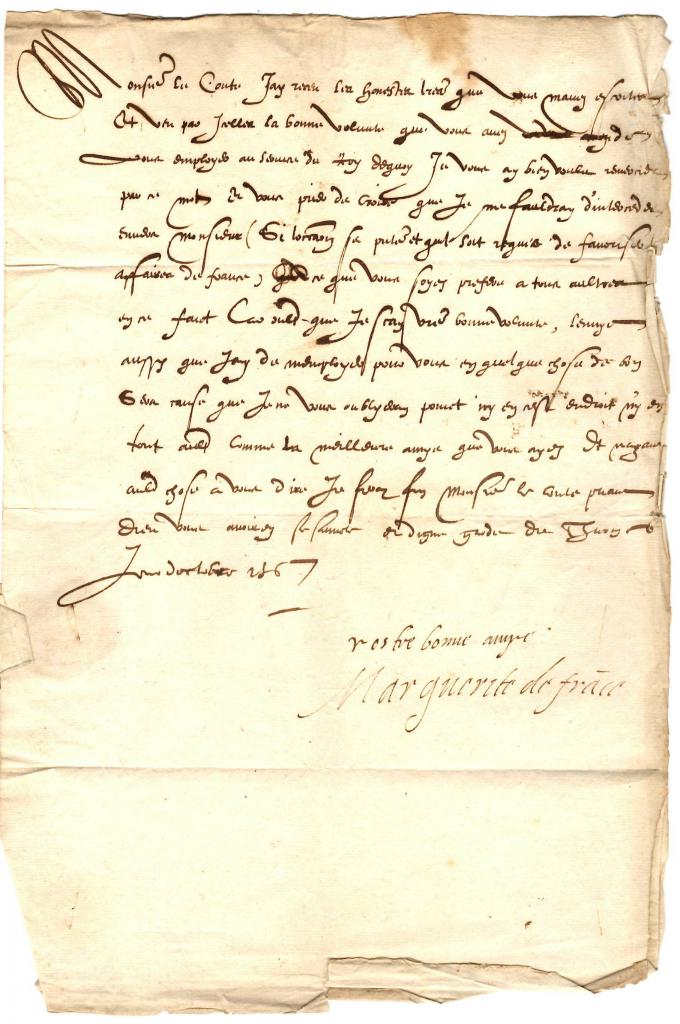 Monsr le Conte Jay receu les honestes lres que vous mavez escrites
Et veu par Jcelles la bonne volunte que vous avez de
vous employer au service du Roy dequoy Je vous ay bien voulu remercier
par ce mot Et vous prier de croire que Je ne fauldray d'interceder
envers Monsieur (Si loccaon se pnte et quil soit requis de favoriser
affaires de france) ce que vous soyez prefere a tous aultres
en ce faict Car oultre que Je scay vre bonne volunte, lenvye
aussy que Jay de memployer pour vous en quelque chose de bon
Sera cause que Je ne vous oublyeray poinct ny en cest endroit ny en
tout aultre comme la meilleure amye que vous ayez Et nayant
aultre chose a vous dire Je feray fin Monsr le conte priant
dieu vous avoir en sa saincte et digne garde De Thurin
doctobre 1567
vostre bonne amye
Marguerite de frāce